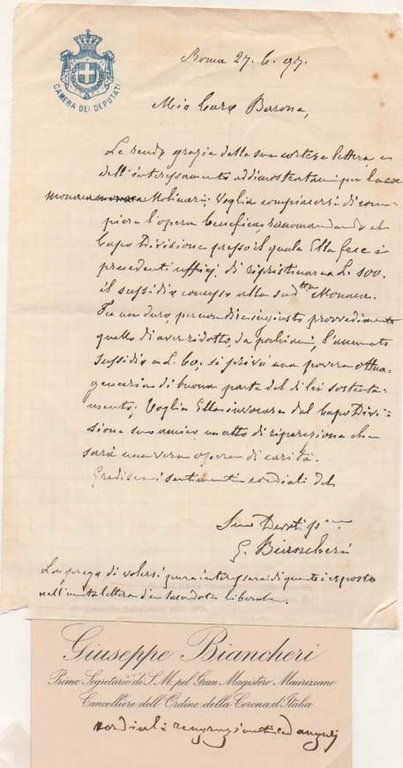 CAMERA DEI DEPUTATI
Roma 27. 6. 97.
Mio Caro Barone,
Le rendo grazie della sua cortese lettera e
dell'interessamento addimostratomi per la ex
monaca Molinari. Voglia compiacersi di com-
piere l'opera benefica, raccomandando al
Capo Divisione presso il quale Ella fece i
precedenti uffizi, di ripristinare a L. 100.
il sussidio concesso alla sud.tta Monaca.
Fu un duro, per non dire ingiusto provvedimento
quello di aver ridotto, da pochi anni, l'annuo
sussidio a L. 60. si privò una povera ottua-
genaria di buona parte del di lei sostenta-
mento; Voglia Ella invocare dal Capo Divi-
sione suo amico un atto di riparazione che
sarà una vera opera di carità.
Gradisca i sentimenti cordiali del
Suo
G. Biancheri
La prega di volersi pure interessare di quanto è esposto
nell'unita lettera d'un
Giuseppe Biancheri
Primo Segretario di S. M. pel Gran Magistero Mauriziano
Cancelliere dell'Ordine della Corona d'Italia
cordiali ringraziamenti ed auguri